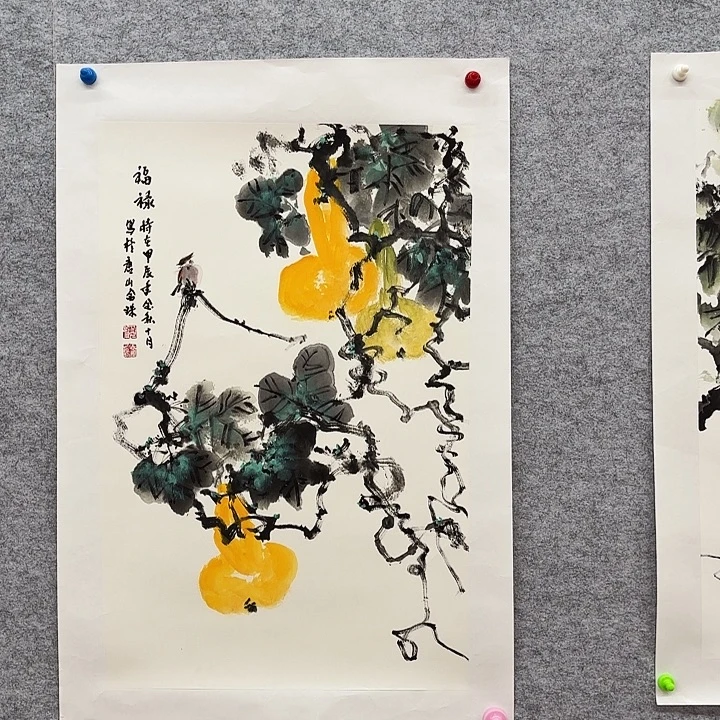 福禄
時在甲辰年仲秋十月
写於唐山金珠